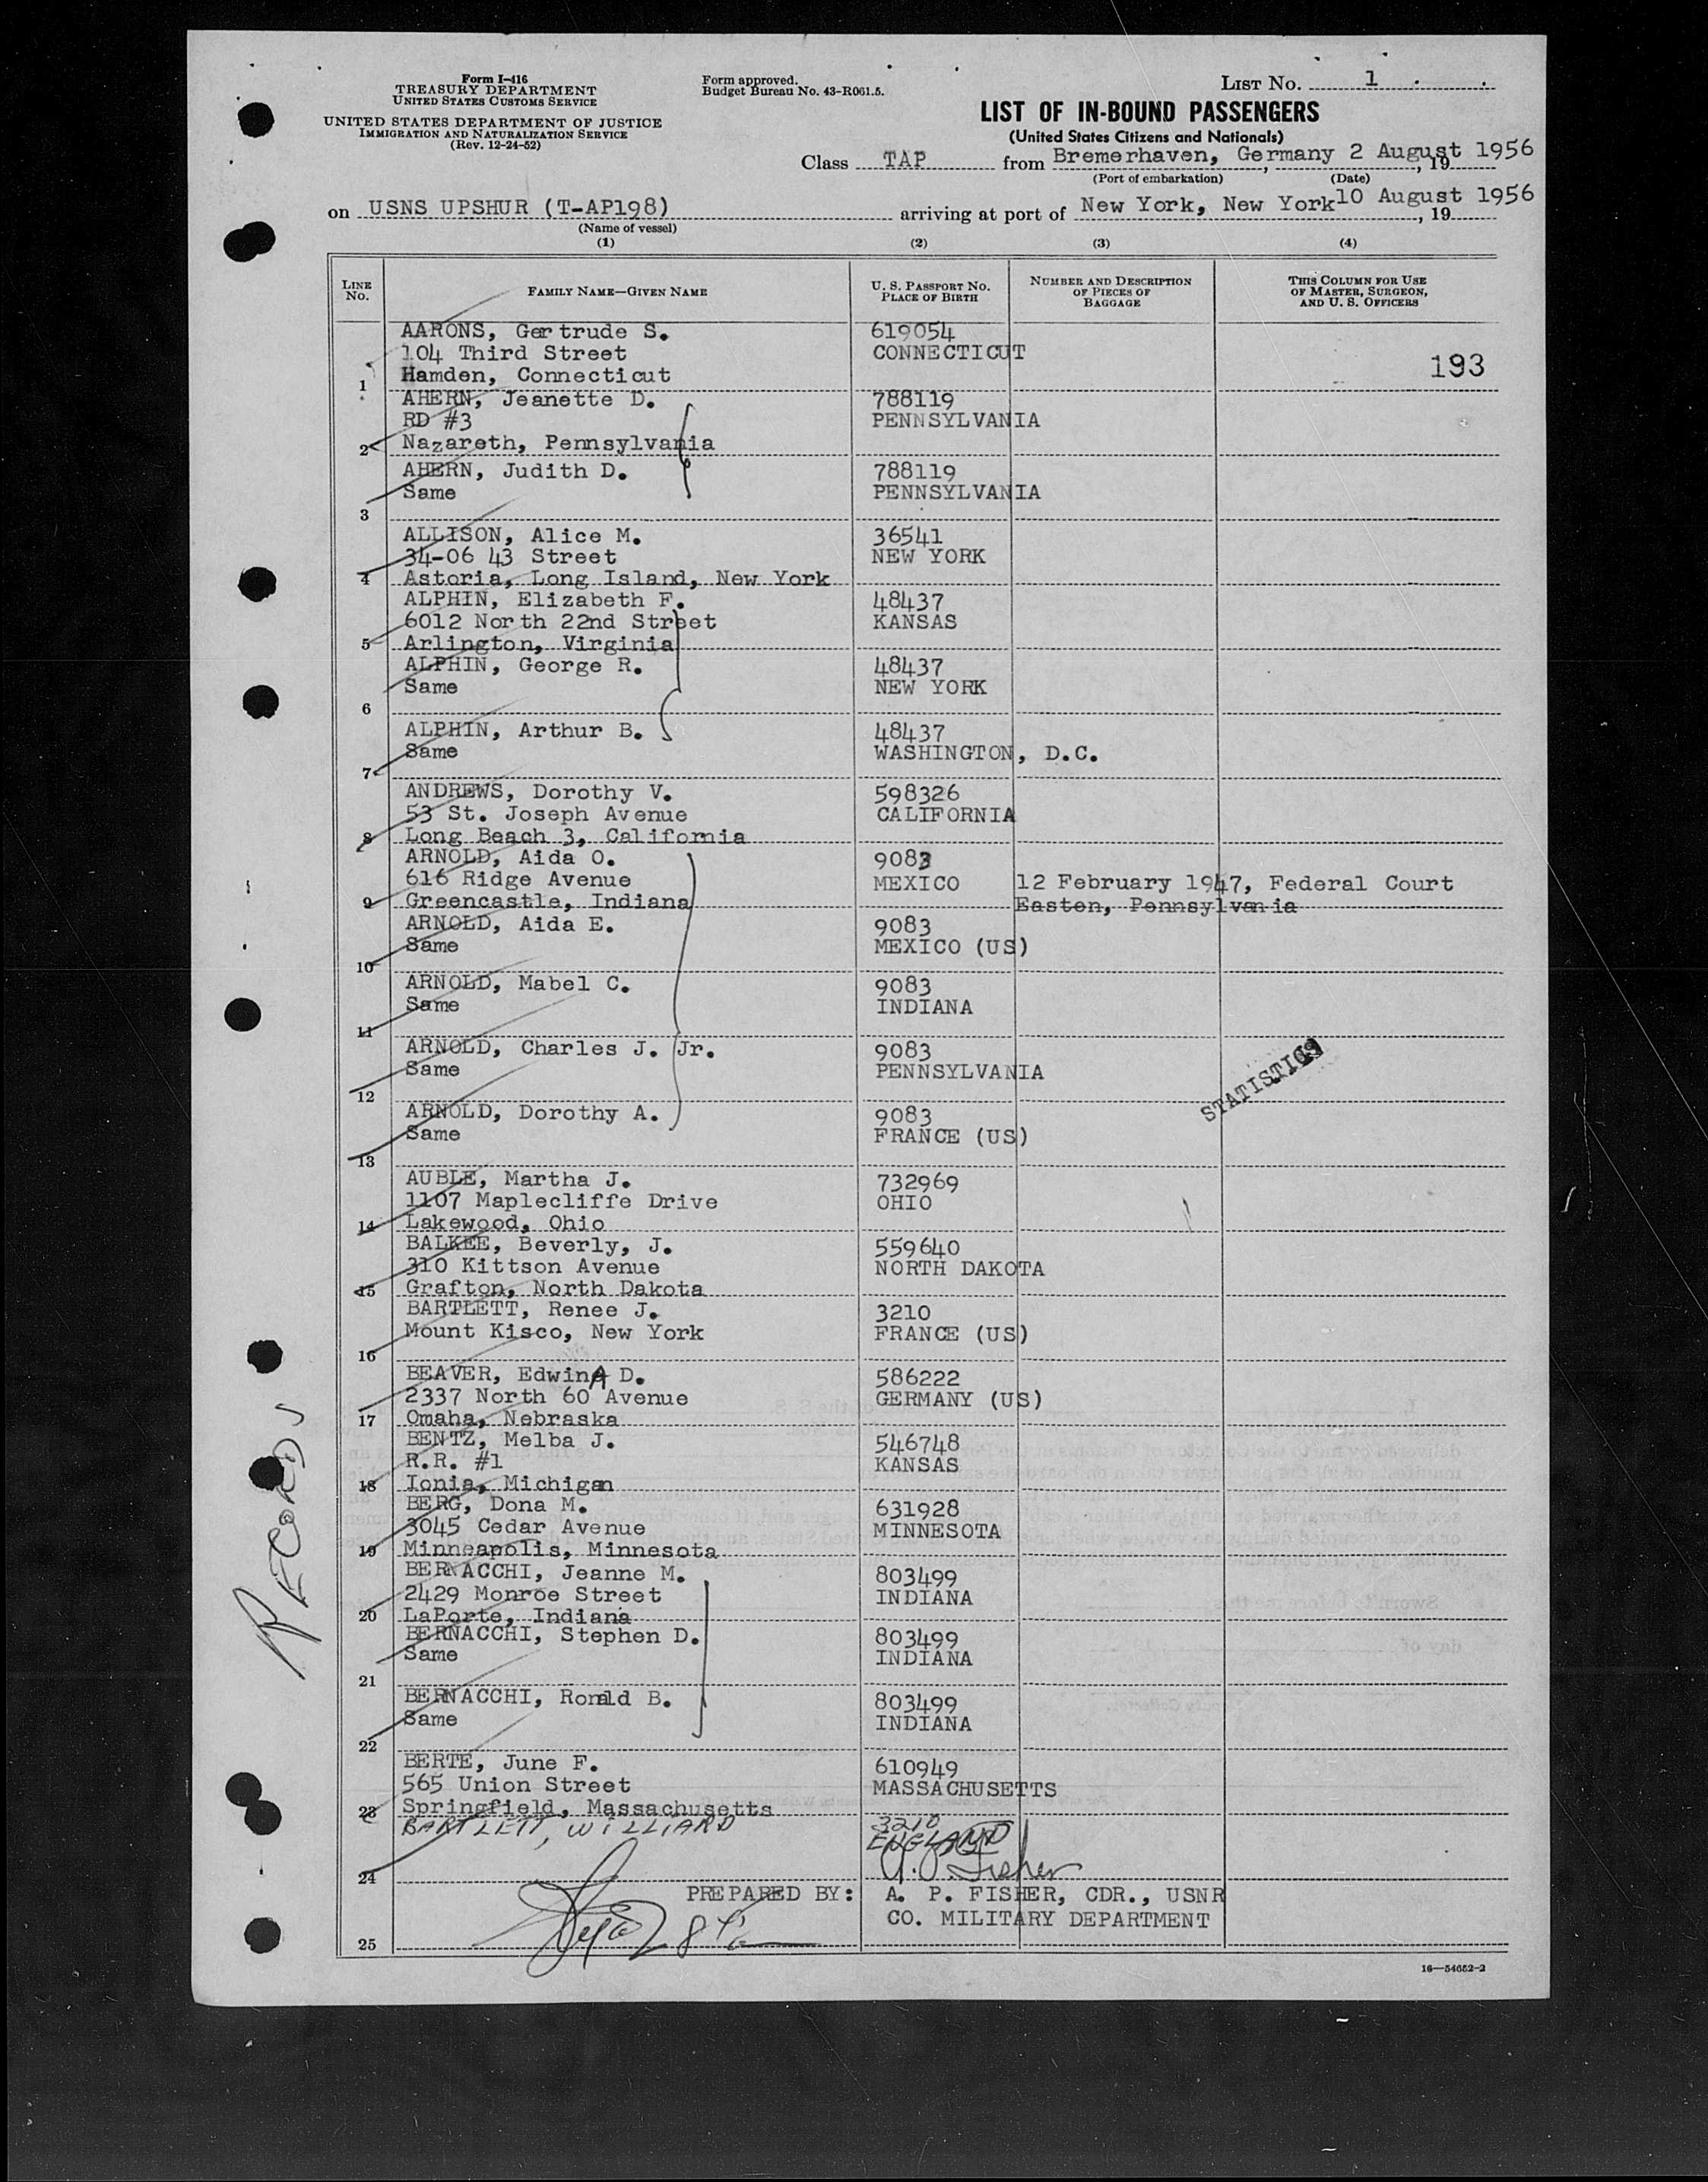 Form I-416
TREASURY DEPARTMENT
UNITED STATES CUSTOMS SERVICE
UNITED STATES DEPARTMENT OF JUSTICE
IMMIGRATION AND NATURALIZATION SERVICE
(Rev. 12-24-52)
Form approved.
Budget Bureau No. 43-R061.5.
LIST No. 1
LIST OF IN-BOUND PASSENGERS
(United States Citizens and Nationals)
Class TAP from Bremerhaven, Germany 2 August 1956, 19
(Port of embarkation) (Date)
on USNS UPSHUR (T-AP198) arriving at port of New York, New York 10 August 1956, 19
(Name of vessel)
(1) (2) (3) (4)
LINE No. FAMILY NAME—GIVEN NAME U. S. PASSPORT No. PLACE OF BIRTH NUMBER AND DESCRIPTION OF PIECES OF BAGGAGE THIS COLUMN FOR USE OF MASTER, SURGEON, AND U. S. OFFICERS
AARONS, Gertrude S. 619054
104 Third Street CONNECTICUT 193
1 Hamden, Connecticut
AHERN, Jeanette D. 788119
RD #3 PENNSYLVANIA
2 Nazareth, Pennsylvania
AHERN, Judith D. 788119
Same PENNSYLVANIA
3
ALLISON, Alice M. 36541
34-06 43 Street NEW YORK
4 Astoria, Long Island, New York
ALPHIN, Elizabeth F. 48437
6012 North 22nd Street KANSAS
5 Arlington, Virginia
ALPHIN, George R. 48437
Same NEW YORK
6
ALPHIN, Arthur B. 48437
Same WASHINGTON, D.C.
7
ANDREWS, Dorothy V. 598326
53 St. Joseph Avenue CALIFORNIA
8 Long Beach 3, California
ARNOLD, Aida O. 9083
616 Ridge Avenue MEXICO 12 February 1947, Federal Court
9 Greencastle, Indiana Easton, Pennsylvania
ARNOLD, Aida E. 9083
Same MEXICO (US)
10
ARNOLD, Mabel C. 9083
Same INDIANA
11
ARNOLD, Charles J. Jr. 9083
Same PENNSYLVANIA
12
STATISTICS
ARNOLD, Dorothy A. 9083
Same FRANCE (US)
13
AUBLE, Martha J. 732969
1107 Maplecliffe Drive OHIO
14 Lakewood, Ohio
BALKEE, Beverly, J. 559640
310 Kittson Avenue NORTH DAKOTA
15 Grafton, North Dakota
BARTLETT, Renee J. 3210
Mount Kisco, New York FRANCE (US)
16
BEAVER, EdwinA D. 586222
2337 North 60 Avenue GERMANY (US)
17 Omaha, Nebraska
BENTZ, Melba J. 546748
R.R. #1 KANSAS
18 Ionia, Michigan
BERG, Dona M. 631928
3045 Cedar Avenue MINNESOTA
19 Minneapolis, Minnesota
BERNACCHI, Jeanne M. 803499
2429 Monroe Street INDIANA
20 LaPorte, Indiana
BERNACCHI, Stephen D. 803499
Same INDIANA
21
BERNACCHI, Ronald B. 803499
Same INDIANA
22
BERTE, June F. 610949
565 Union Street MASSACHUSETTS
23 Springfield, Massachusetts
BARTLETT, WILLIARD 3210
ENGLAND
24 A. P. Fisher
PREPARED BY: A. P. FISHER, CDR., USNR
CO. MILITARY DEPARTMENT
25
16—54652-2
RECORDS